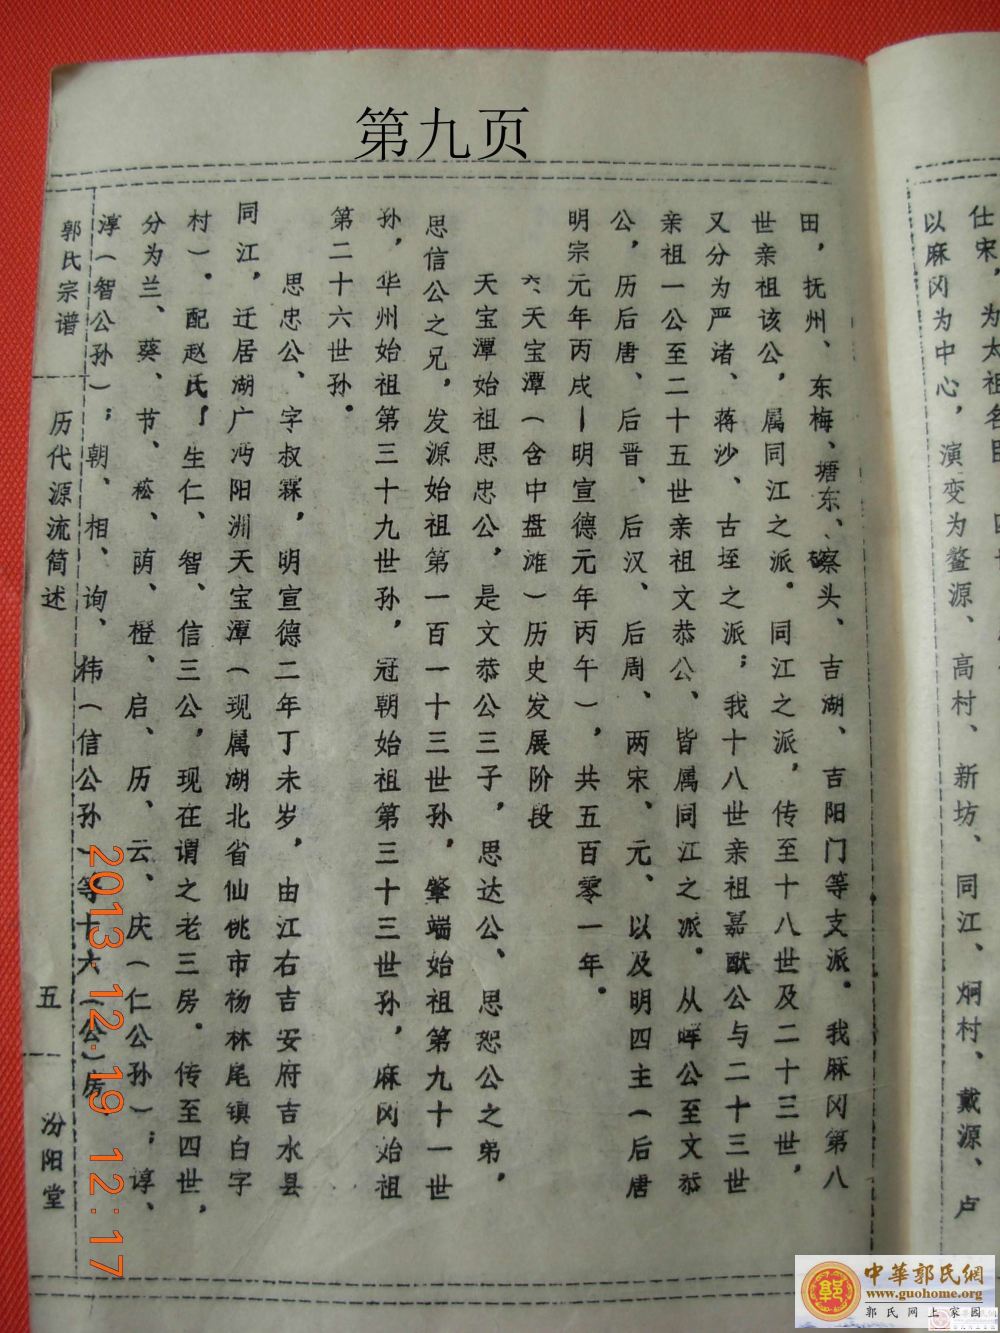 第九页
仕宋，为太祖名臣
以麻冈为中心，演变为鳌源、高村、新坊、同江、炯村、戴源、卢
田，抚州、东梅、塘东、察头、吉湖、吉阳门等支派。我麻冈第八
世亲祖该公，属同江之派。同江之派，传至十八世及二十三世，
又分为严渚、蒋沙、古垤之派；我十八世亲祖嘉猷公与二十三世
亲祖一公至二十五世亲祖文恭公、皆属同江之派。从晖公至文恭
公，历后唐、后晋、后汉、后周、两宋、元、以及明四主（后唐
明宗元年丙戌—明宣德元年丙午），共五百零一年。
六、天宝潭（含中盘滩）历史发展阶段
天宝潭始祖思忠公，是文恭公三子，思达公、思恕公之弟，
思信公之兄，发源始祖第一百一十三世孙，肇端始祖第九十一世
孙，华州始祖第三十九世孙，冠朝始祖第三十三世孙，麻冈始祖
第二十六世孙。
思忠公、字叔霖，明宣德二年丁未岁，由江右吉安府吉水县
同江，迁居湖广沔阳洲天宝潭（现属湖北省仙桃市杨林尾镇白字
村）。配赵氏，生仁、智、信三公，现在谓之老三房。传至四世，
分为兰、葵、节、菘、荫、橙、启、历、云、庆（仁公孙）；谆、
淳（智公孙）；朝、相、询、祎（信公孙）等十六（公）房。
郭氏宗谱 历代源流简述 五 汾阳堂
2013.12.19 12:17
中華郭氏網
www.guohome.org
郭氏网上家园